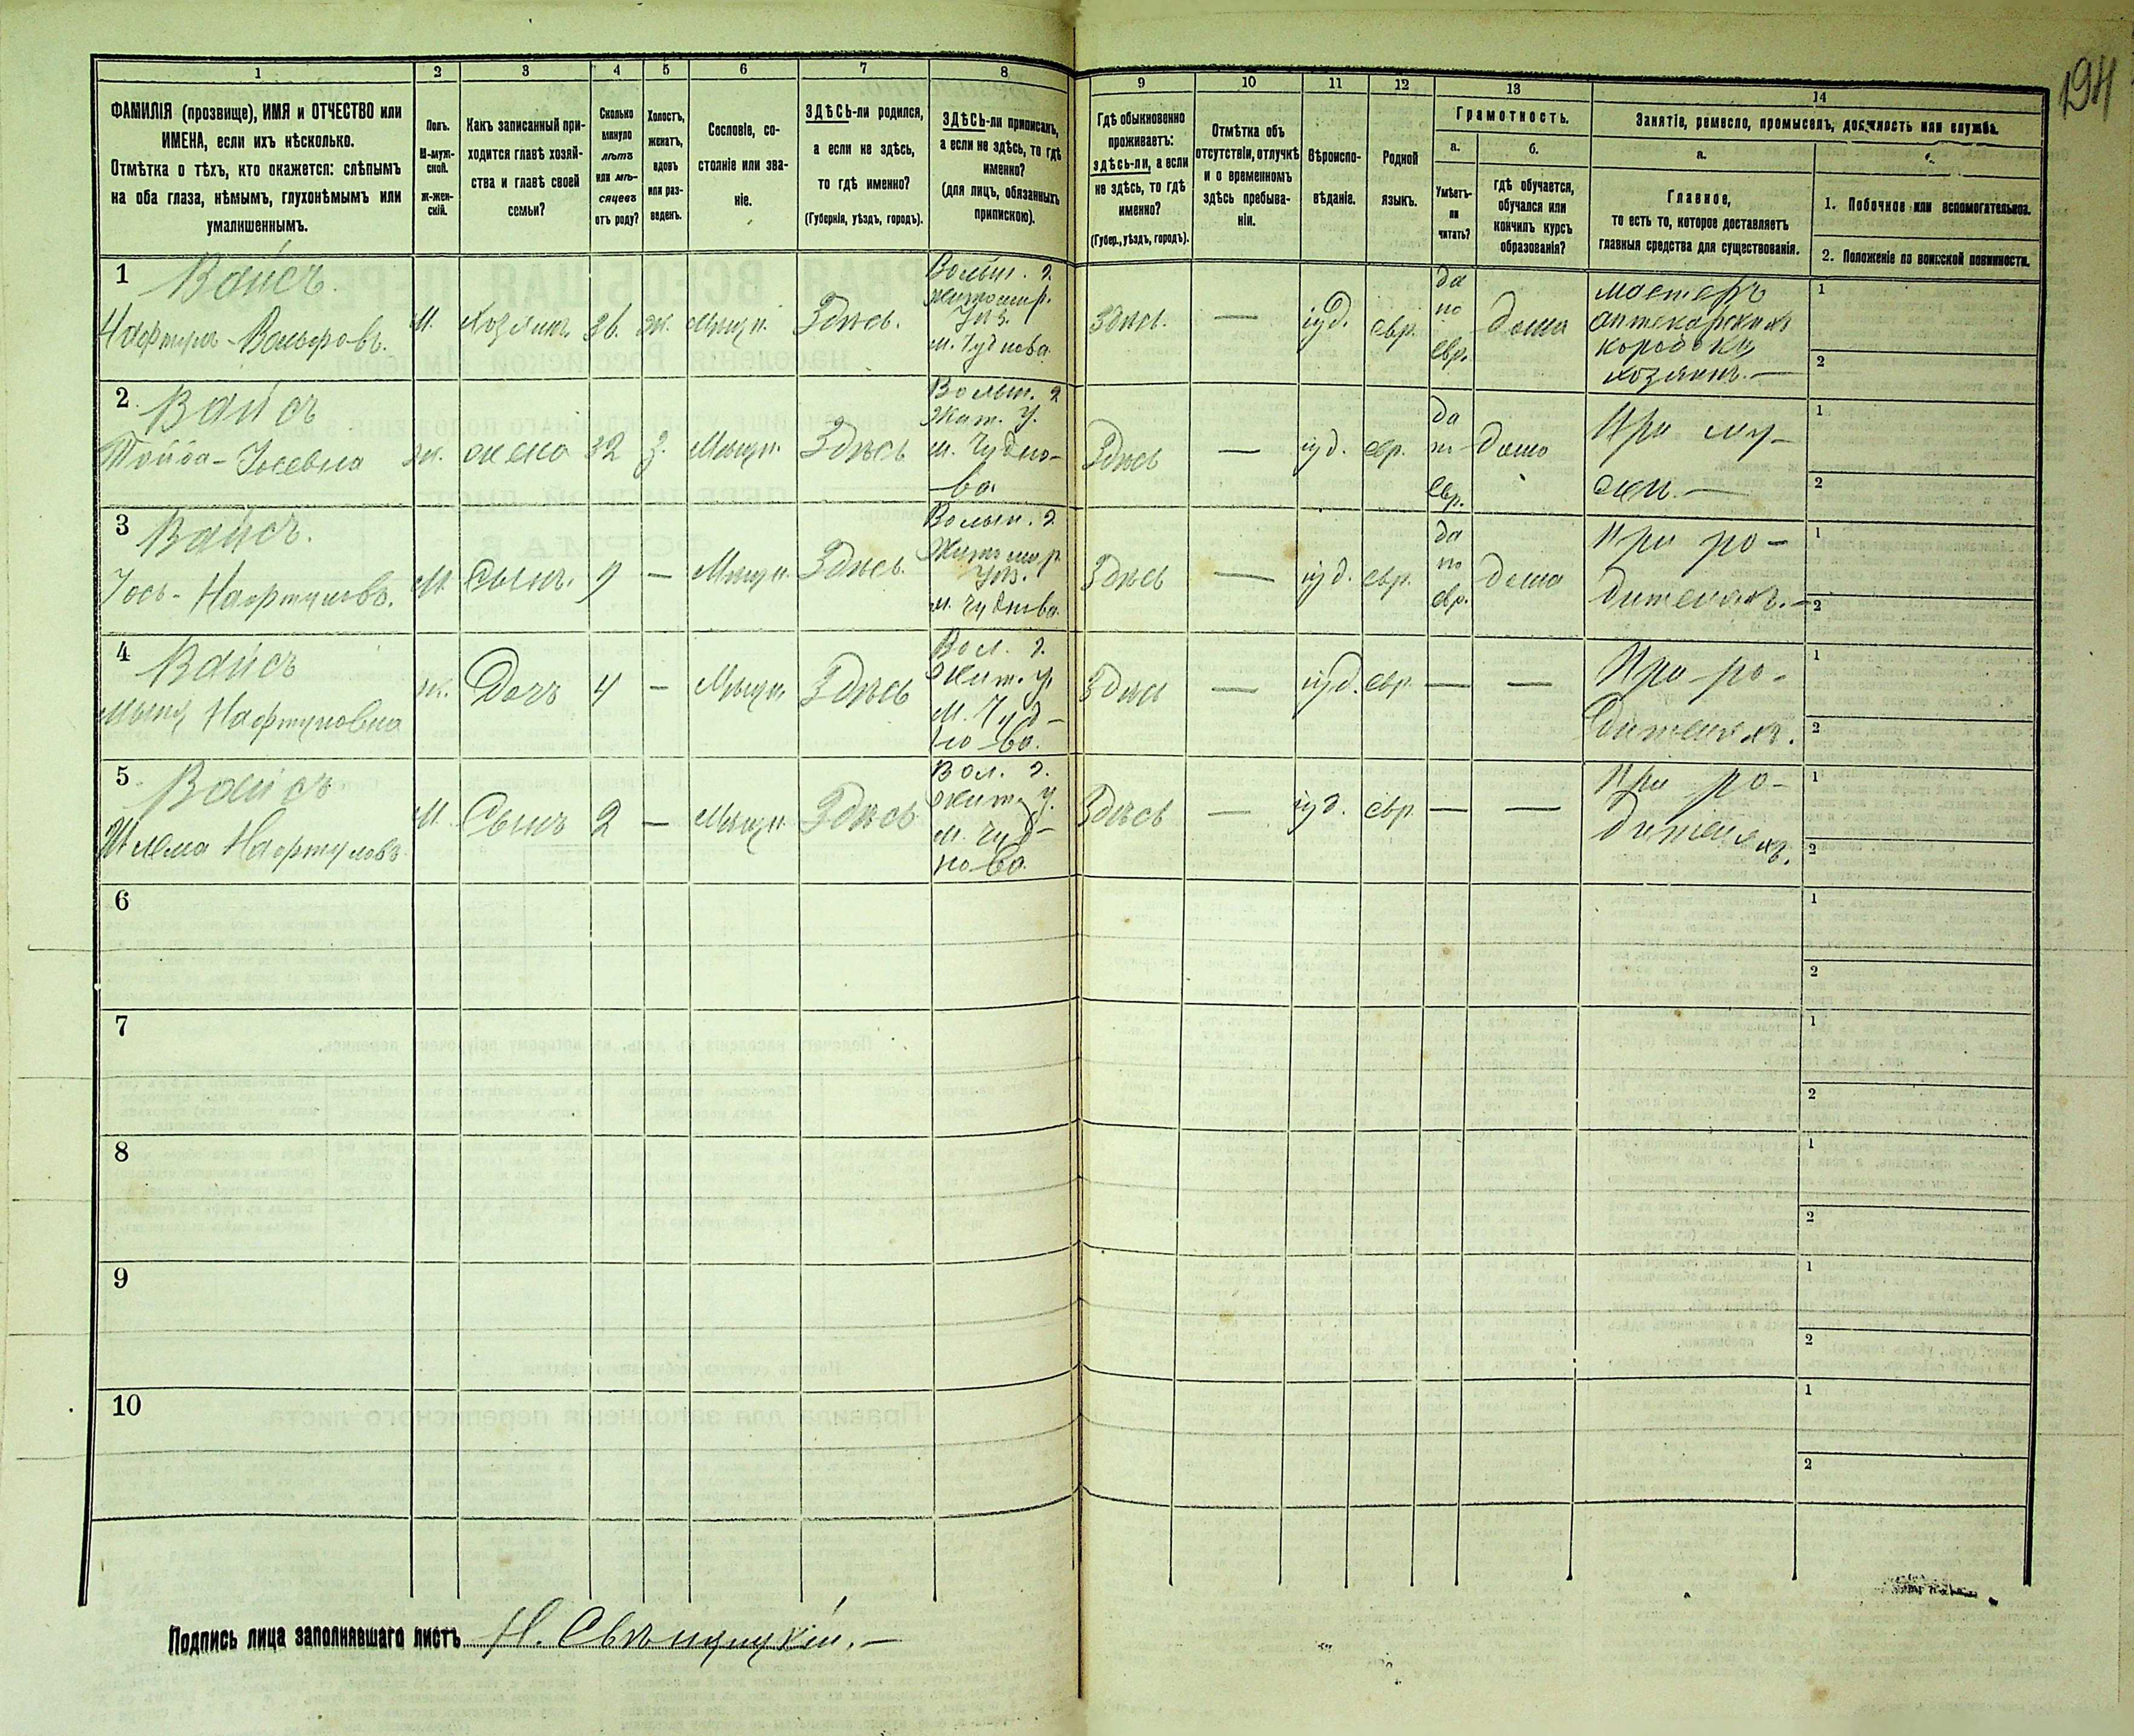 194
1
2
3
4
5
6
7
8
9
10
11
12
13
14
ФАМИЛІЯ (прозвище), ИМЯ и ОТЧЕСТВО или
ИМЕНА, если ихъ нѣсколько.
Отмѣтка о тѣхъ, кто окажется: слѣпымъ
на оба глаза, нѣмымъ, глухонѣмымъ или
умалишеннымъ.
Полъ.
М-муж-
ской.
ж-жен-
скій.
Какъ записанный при-
ходится главѣ хозяй-
ства и главѣ своей
семьи?
Сколько
минуло
лѣтъ
или мѣ-
сяцевъ
отъ роду?
Холостъ,
женатъ,
вдовъ
или раз-
веденъ.
Сословіе, со-
стояніе или зва-
ніе.
ЗДѢСЬ-ли родился,
а если не здѣсь,
то гдѣ именно?
(Губернія, уѣздъ, городъ).
ЗДѢСЬ-ли приписанъ,
а если не здѣсь, то гдѣ
именно?
(для лицъ, обязанныхъ
припискою).
Гдѣ обыкновенно
проживаетъ:
здѣсь-ли, а если
не здѣсь, то гдѣ
именно?
(Губер., уѣздъ, городъ).
Отмѣтка объ
отсутствіи, отлучкѣ
и о временномъ
здѣсь пребыва-
ніи.
Вѣроиспо-
вѣданіе.
Родной
языкъ.
Грамотность.
а.
Умѣетъ-
ли
читать?
б.
гдѣ обучается,
обучался или
кончилъ курсъ
образованія?
Занятіе, ремесло, промыселъ, должность или служба.
а.
Главное,
то есть то, которое доставляетъ
главныя средства для существованія.
1. Побочное или вспомогательное.
2. Положеніе по воинской повинности.
1
Вайсъ.
Нафтула-Вольфовъ.
М.
Хозяинъ
36.
ж.
Мѣщан.
Здѣсь.
Волын. г.
Житомир.
уѣз.
м. Чуднова
Здѣсь.
—
іуд.
евр.
да
по
евр.
дома
мастеръ
аптекарскихъ
коробокъ
хозяинъ.—
1
2
2
Вайсъ
Іосевна
ж.
жена
32
з.
Мѣщан.
Здѣсь
Волын. г
Жит. у.
м. Чудно-
ва.
Здѣсь
—
іуд.
евр.
да
по
евр.
дома
При му-
жѣ.—
1
2
3
Вайсъ.
Іось-Нафтуловъ.
М.
Сынъ.
9
—
Мѣщан.
Здѣсь.
Волын. г.
Житомир
уѣз.
м. Чуднова.
Здѣсь
—
іуд.
евр.
да
по
евр.
дома
При ро-
дителяхъ.—
1
2
4
Вайсъ
Нафтуловна
ж.
Дочь
4
—
Мѣщан.
Здѣсь
Вол. г.
Жит. у.
м. Чуд-
но-ва.
Здѣсь
—
іуд.
евр.
—
—
При ро-
дителяхъ.
1
2
5
Вайсъ
Шлема Нафтуловъ
М.
Сынъ
2
—
Мѣщан.
Здѣсь
Вол. г.
Жит. у.
м. Чуд-
но-ва.
Здѣсь
—
іуд.
евр.
—
—
При ро-
дителяхъ.
1
2
6
1
2
7
1
2
8
1
2
9
1
2
10
1
2
Подпись лица заполнявшаго листъ Н. Свѣнцицкій.—